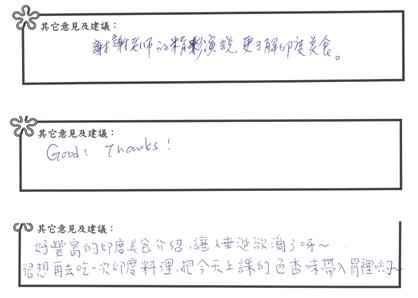 其它意見及建議：
謝謝老師的精彩演說，更了解印度美食。
其它意見及建議：
Good! Thanks!
其它意見及建議：
好豐富的印度美食介紹，讓人垂涎欲滴了呀～
很想再去吃一次印度料理，把今天上課的色香味帶入胃裡